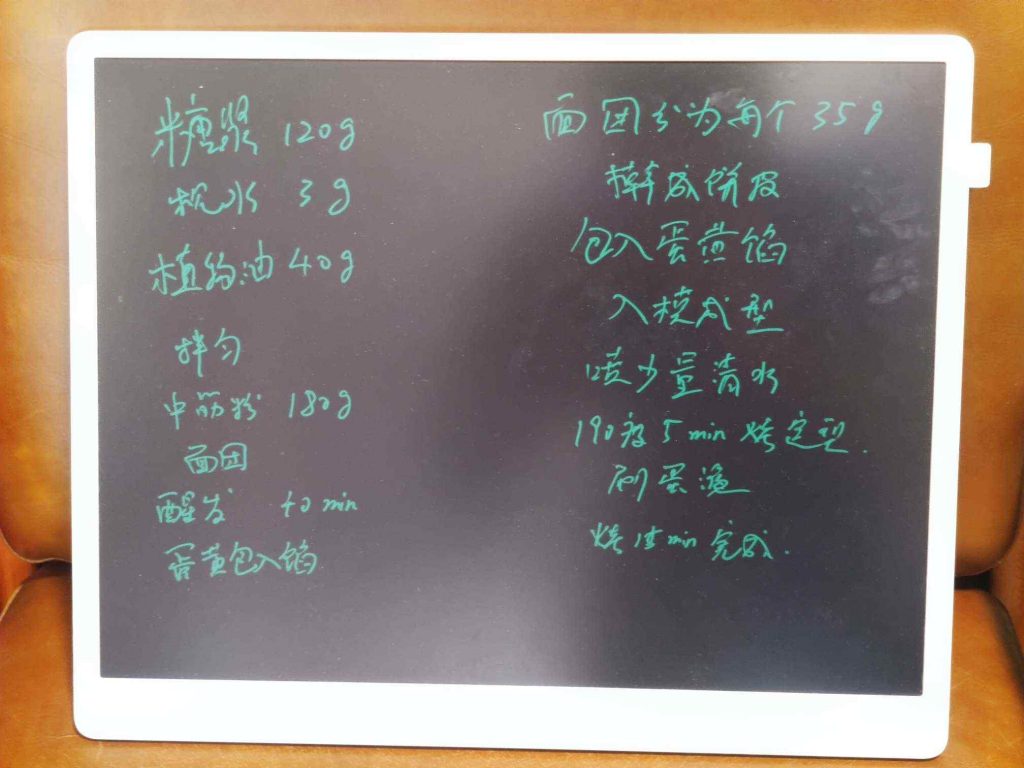 糖浆 120g
枧水 3g
植物油 40g
拌匀
中筋粉 180g
面团
醒发 40 min
蛋黄包入馅
面团分为每个 35g
擀成饼皮
包入蛋黄馅
入模成型
喷少量清水
190度 5 min 烤定型.
刷蛋液
烤 15 min 完成.